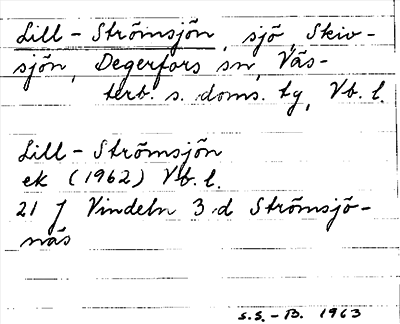 Lill-Strömsjön, sjö, Skiv-
sjön, Degerfors sn, Väs-
terb. s. doms. tg, Vb. l.
Lill-Strömsjön
ek (1962) Vb. l.
21 J Vindeln 3 d Strömsjö-
näs
S.S.-B. 1963